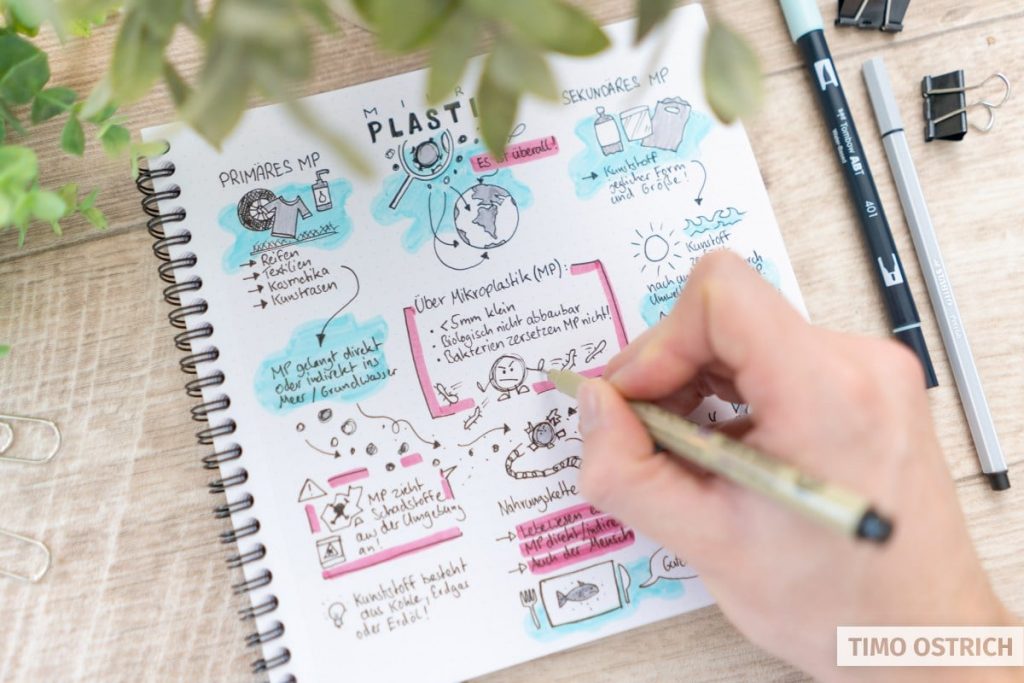 MIKR
PLASTI
Es ist überall!
PRIMÄRES MP
→ Reifen
→ Textilien
→ Kosmetika
→ Kunstrasen
MP gelangt direkt
oder indirekt ins
Meer / Grundwasser
MP zieht
Schadstoffe
aus der Umgebung
an!
Kunststoff besteht
aus Kohle, Erdgas
oder Erdöl!
Über Mikroplastik (MP):
• <5mm klein
• Biologisch nicht abbaubar
• Bakterien zersetzen MP nicht!
Nahrungskette
→ Lebewesen
MP direkt/indire
→ Auch der Mensch
Gute
SEKUNDÄRES MP
→ Kunststoff
jeglicher Form
und Größe!
Kunststoff
nach
Umwel
Tombow ABT
401
TIMO OSTRICH